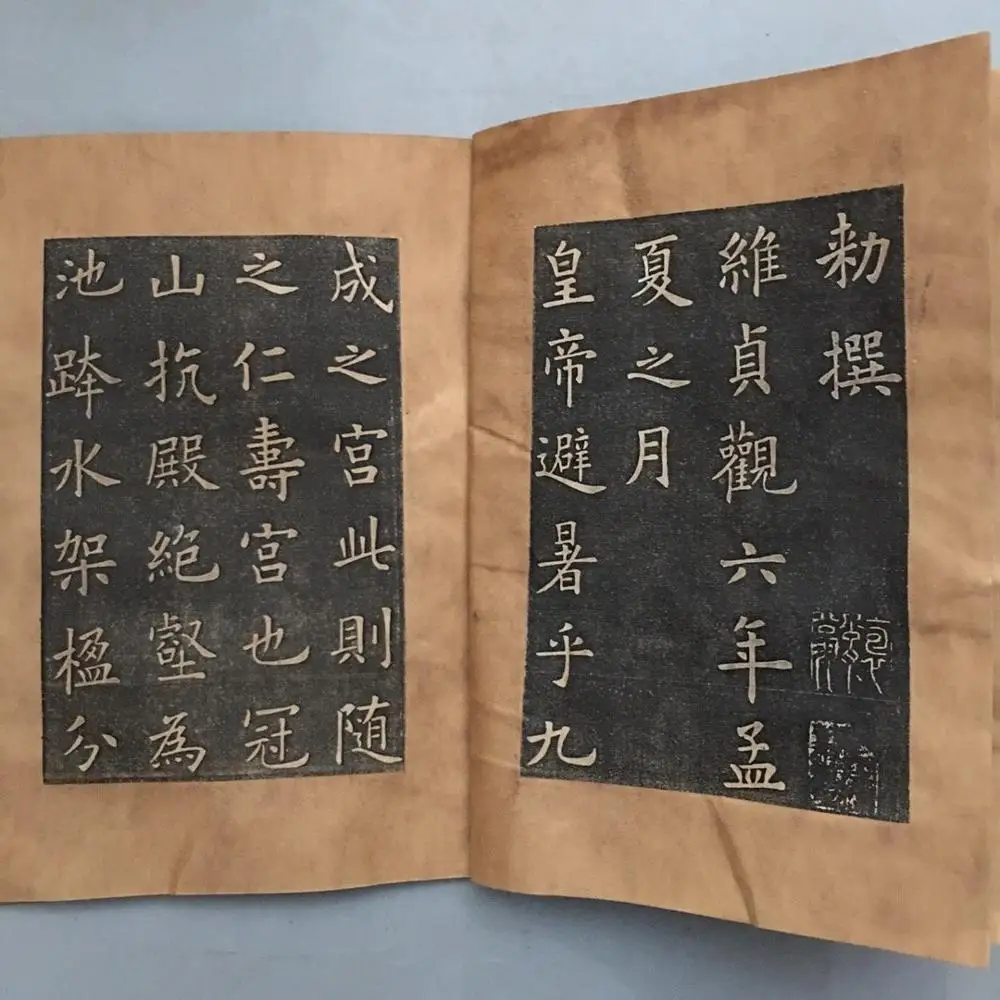 勅撰
維貞觀六年孟
夏之月
皇帝避暑乎九
成之宮此則隨
之仁壽宮也冠
山抗殿絶壑為
池跨水架楹分